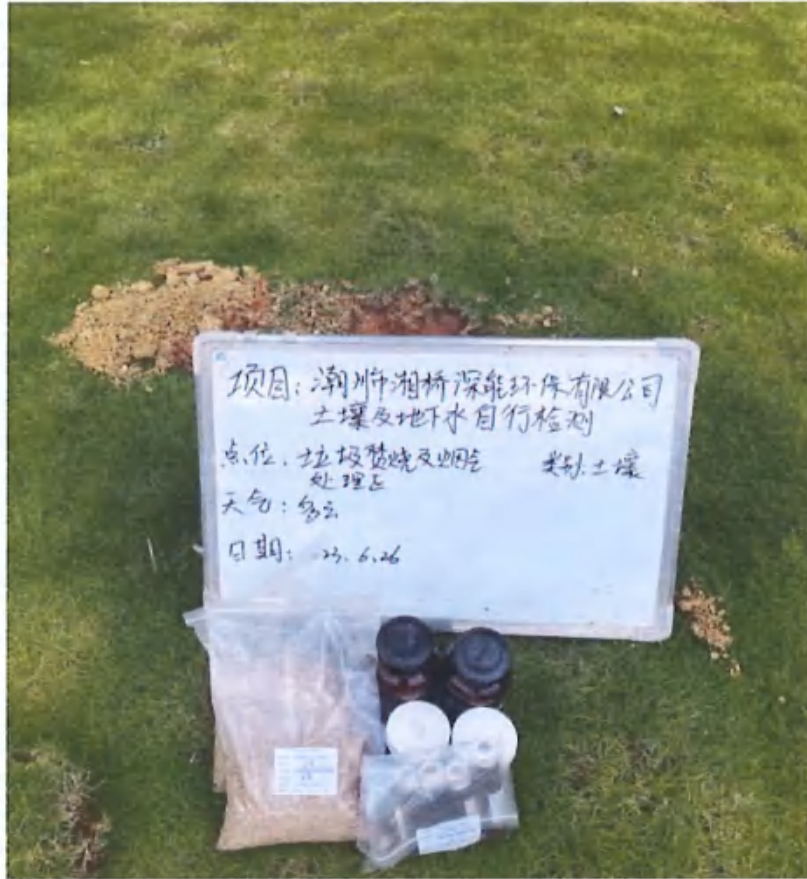 项目：潮州市湘桥深能环保有限公司
土壤及地下水自行检测
点位：垃圾焚烧及烟气 类别：土壤
处理区
天气：多云
日期：23.6.26